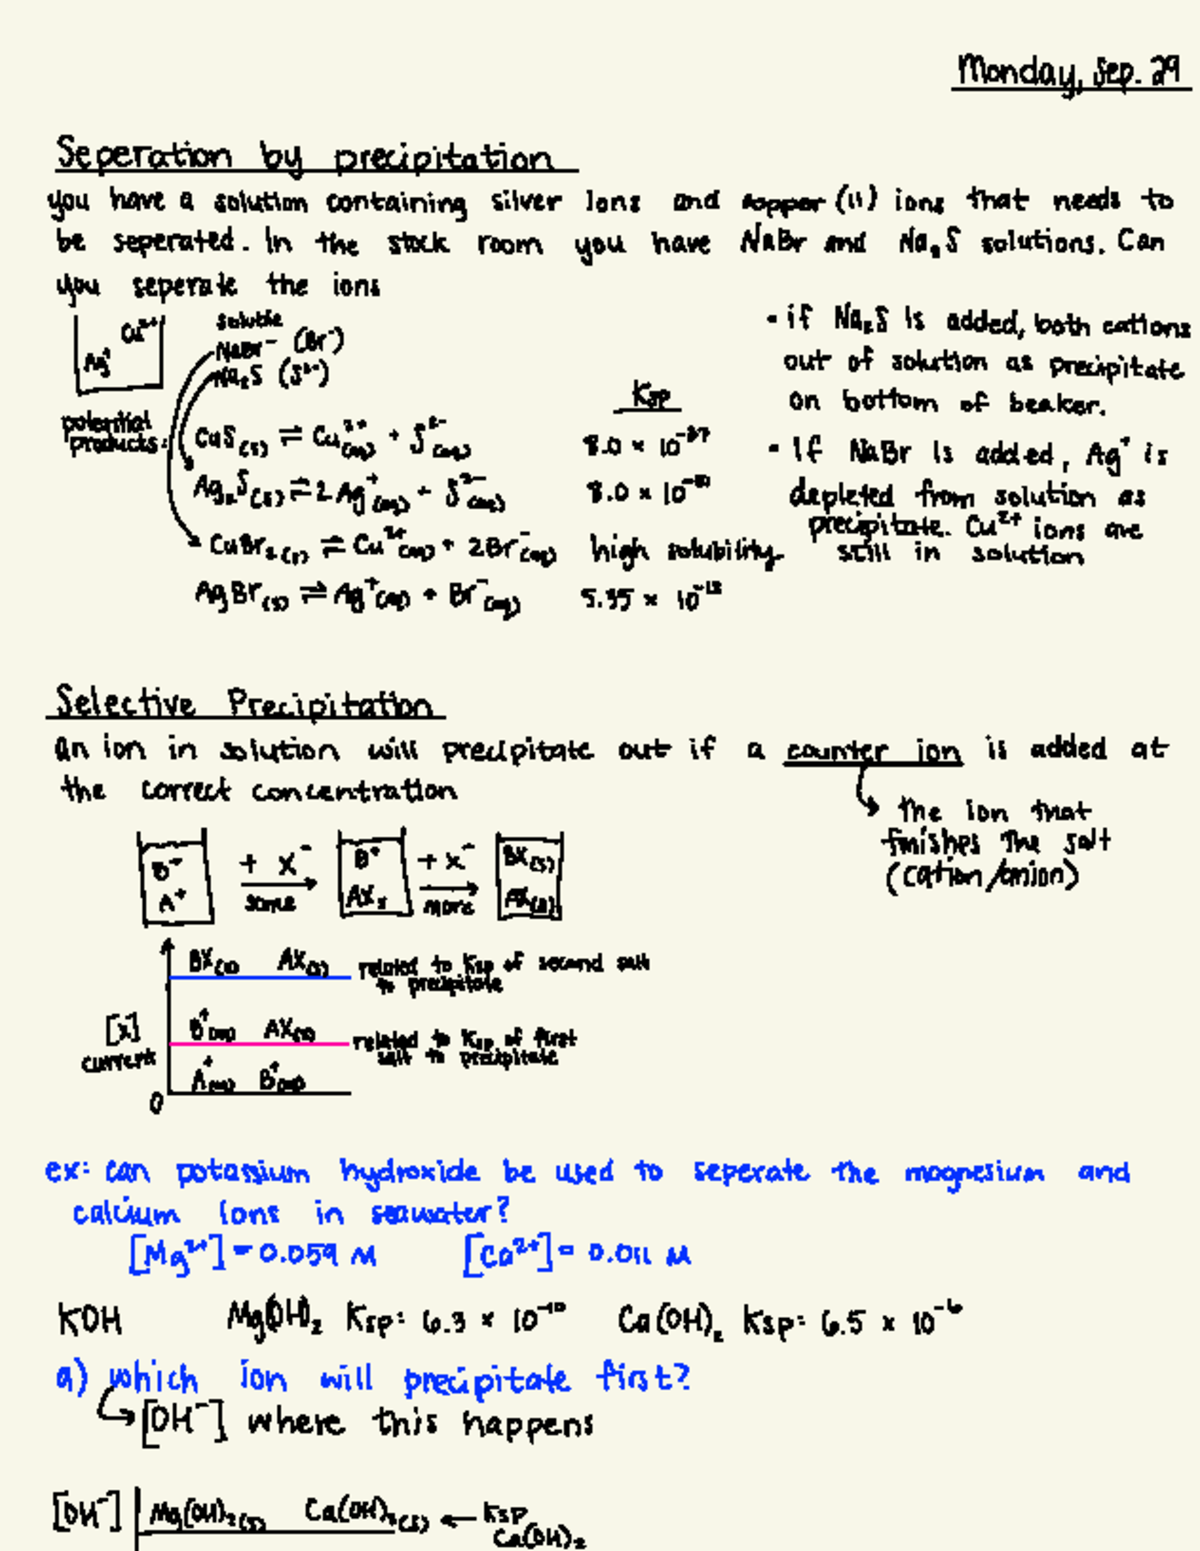 Monday, Sep. 29
Seperation by precipitation
you have a solution containing silver ions and copper (II) ions that needs to
be seperated. In the stock room you have NaBr and Na₂S solutions. Can
you seperate the ions
Cu²⁺
Ag⁺
soluble
NaBr⁻ (Br⁻)
Na₂S (S²⁻)
potential
products:
Ksp
CuS(s) ⇌ Cu²⁺(aq) + S²⁻(aq) 8.0 × 10⁻³⁷
Ag₂S(s) ⇌ 2Ag⁺(aq) + S²⁻(aq) 8.0 ×
CuBr₂(s) ⇌ Cu²⁺(aq) + 2Br⁻(aq) high solubility
AgBr(s) ⇌ Ag⁺(aq) + Br⁻(aq) 5.35 × 10⁻¹³
• if Na₂S is added, both cations
out of solution as precipitate
on bottom of beaker.
• If NaBr is added, Ag⁺ is
depleted from solution as
precipitate. Cu²⁺ ions are
still in solution
Selective Precipitation
an ion in solution will precipitate out if a counter ion is added at
the correct concentration
the ion that
finishes the salt
(cation/anion)
B⁺
A⁺
+ X⁻
some
B⁺
AXs
+ X⁻
more
BX(s)
AX(s)
BX(s) AX(s) related to Ksp of second salt
to precipitate
[X]
current
B⁺(aq) AX(s) related to Ksp of first
salt to precipitate
A⁺(aq) B⁺(aq)
0
ex: can potassium hydroxide be used to seperate the magnesium and
calcium ions in seawater?
[Mg²⁺] = 0.059 M [Ca²⁺] = 0.011 M
KOH Mg(OH)₂ Ksp: 6.3 × 10⁻¹⁰ Ca(OH)₂ Ksp: 6.5 × 10⁻⁶
a) which ion will precipitate first?
[OH⁻] where this happens
[OH⁻] Mg(OH)₂(s) Ca(OH)₂(s) ← Ksp
Ca(OH)₂